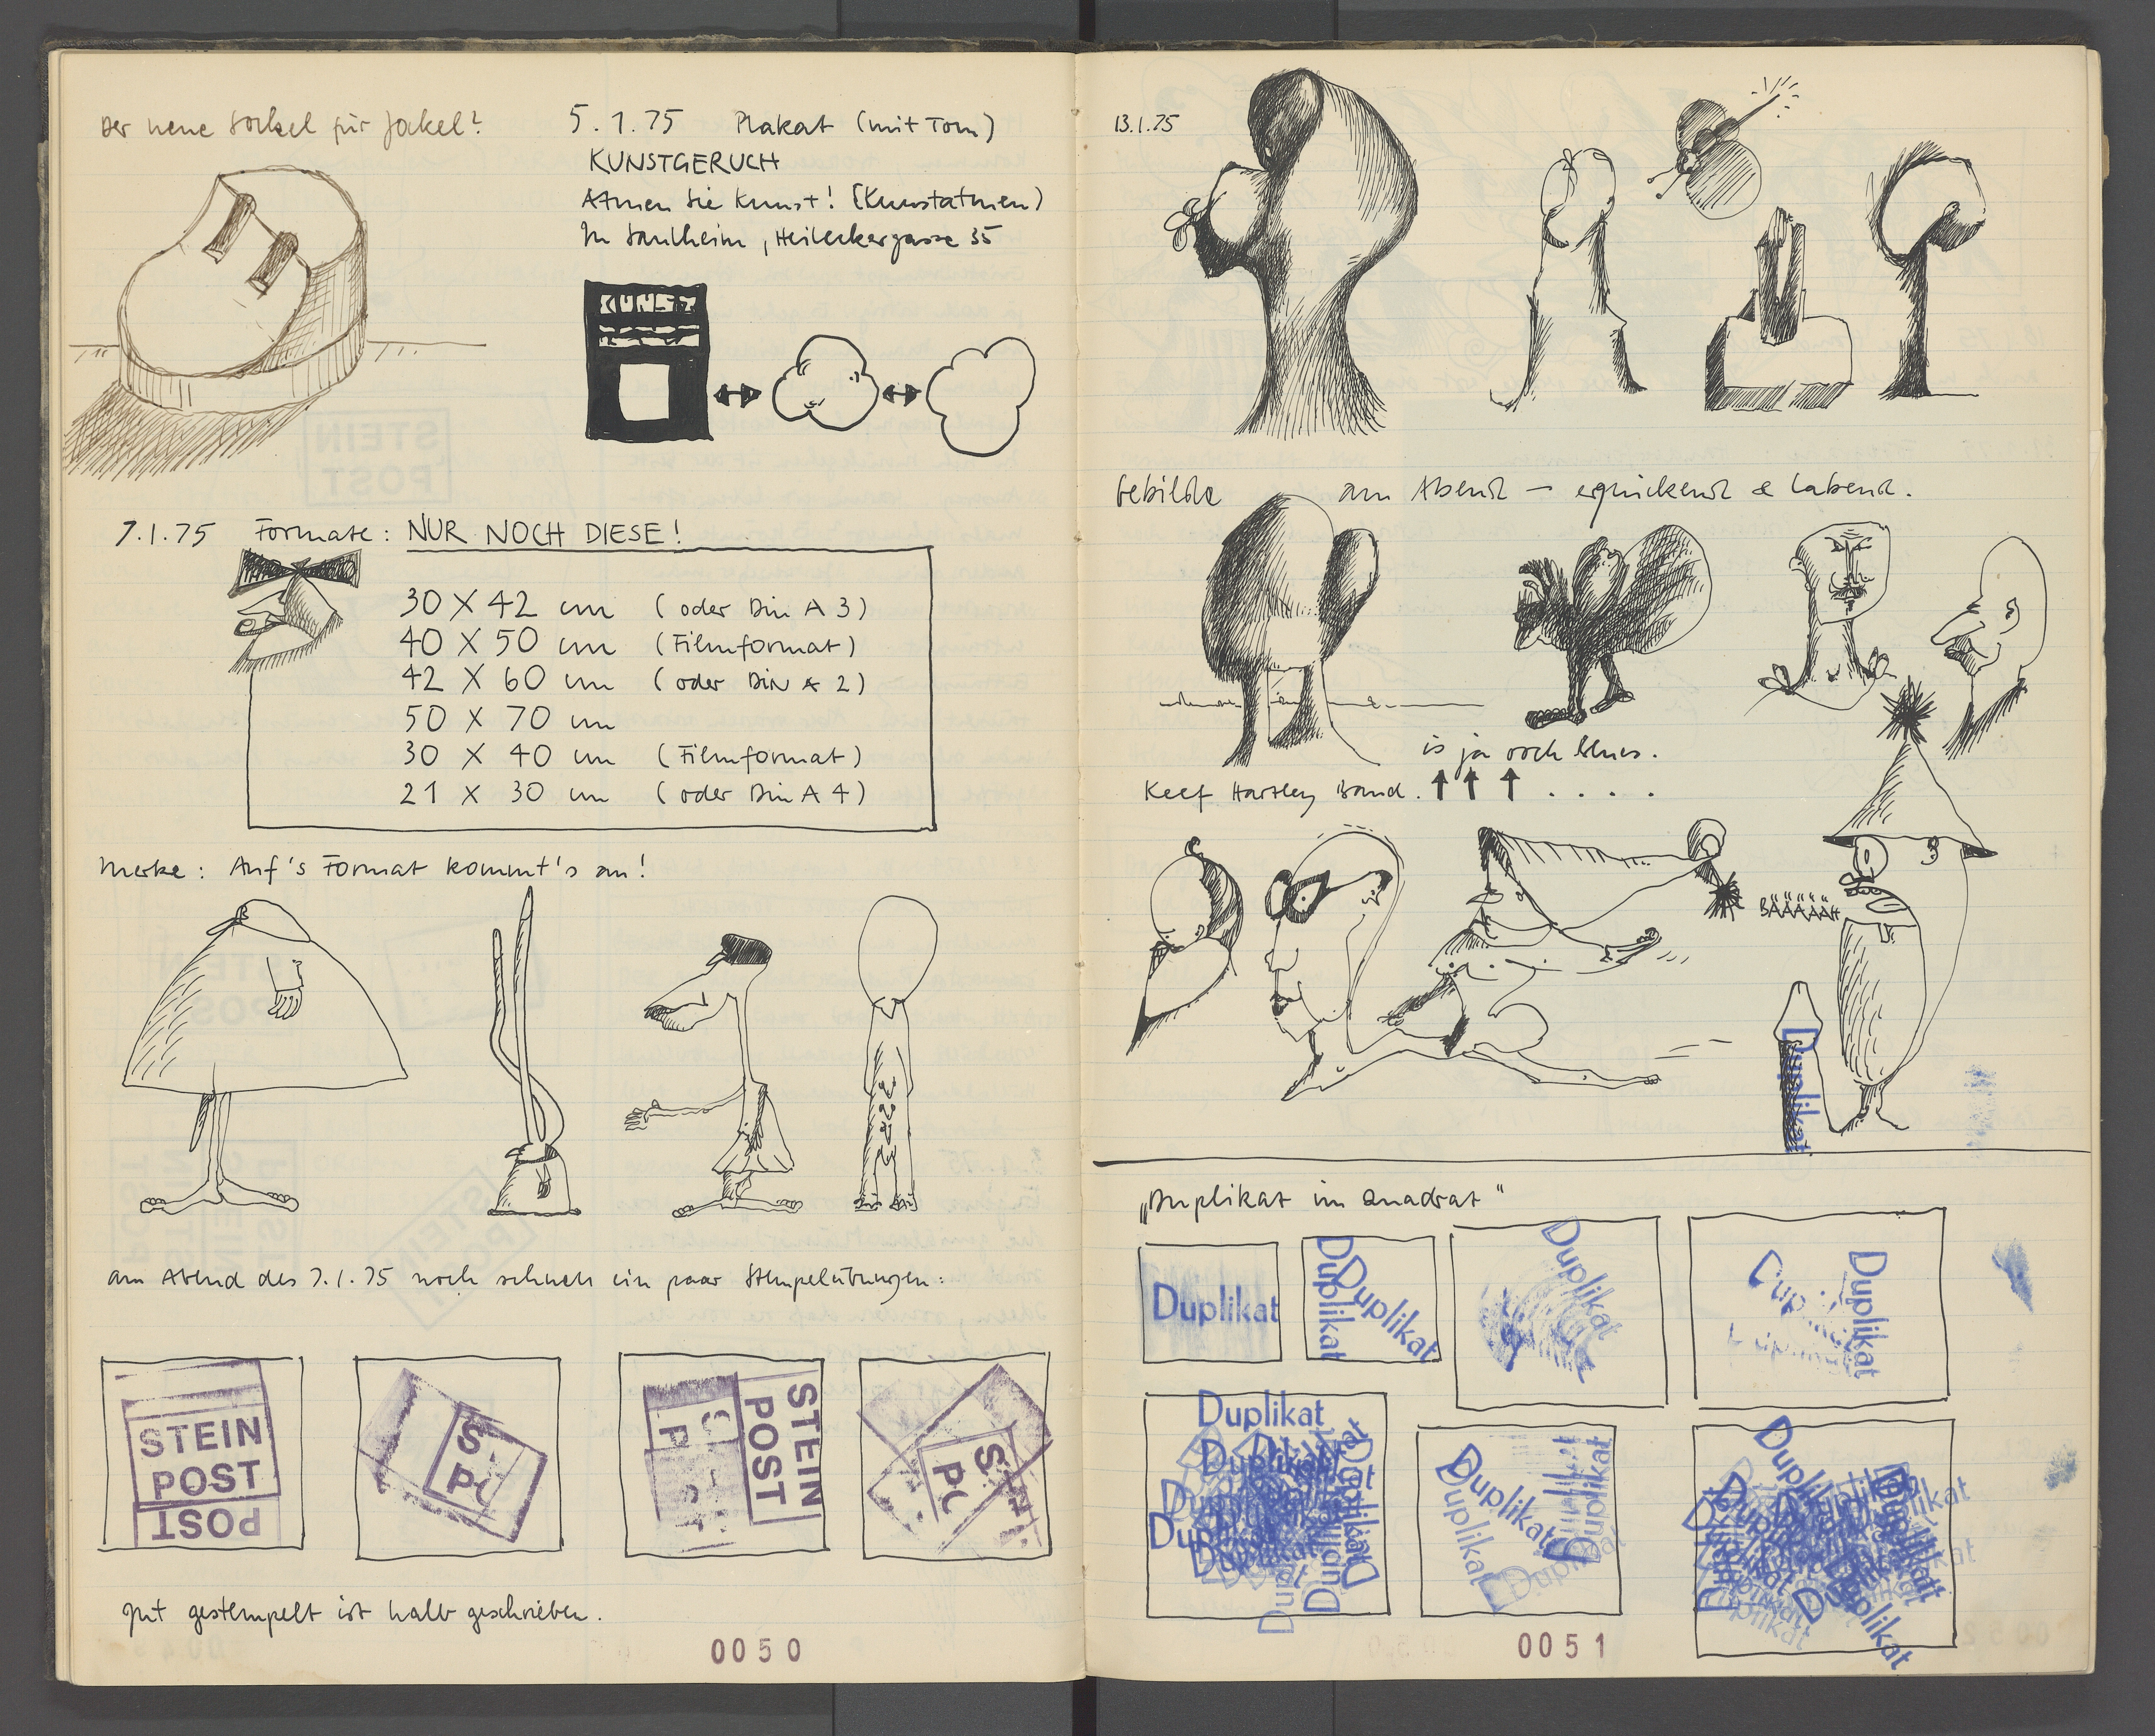 Der neue Sockel für Jockel?
5.1.75 Plakat (mit Tom)
KUNSTGERUCH
Atmen Sie Kunst! (Kunstatmen)
In Saulheim, 35
KUNST
7.1.75 Formate: NUR NOCH DIESE!
30 X 42 cm (oder Din A 3)
40 X 50 cm (Filmformat)
42 X 60 cm (oder DiN A 2)
50 X 70 cm
30 X 40 cm (Filmformat)
21 X 30 cm (oder Din A 4)
Merke: Auf's Format kommt's an!
am Abend des 7.1.75 noch schnell ein paar Stempelübungen:
STEIN
POST
POST
S
PO
STEIN
POST
P
S
PO
gut gestempelt ist halb geschrieben.
0050
13.1.75
Gebilde am Abend – erquickend & labend.
is ja ooch blues.
Keef Hartley Band.
BÄÄÄÄÄH
Duplikat
„Duplikat im Quadrat"
Duplikat
Duplikat
Duplikat
Duplikat
Duplikat
Duplikat
Duplikat
Duplikat
Duplikat
Duplikat
Duplikat
Duplikat
Duplikat
Duplikat
0051